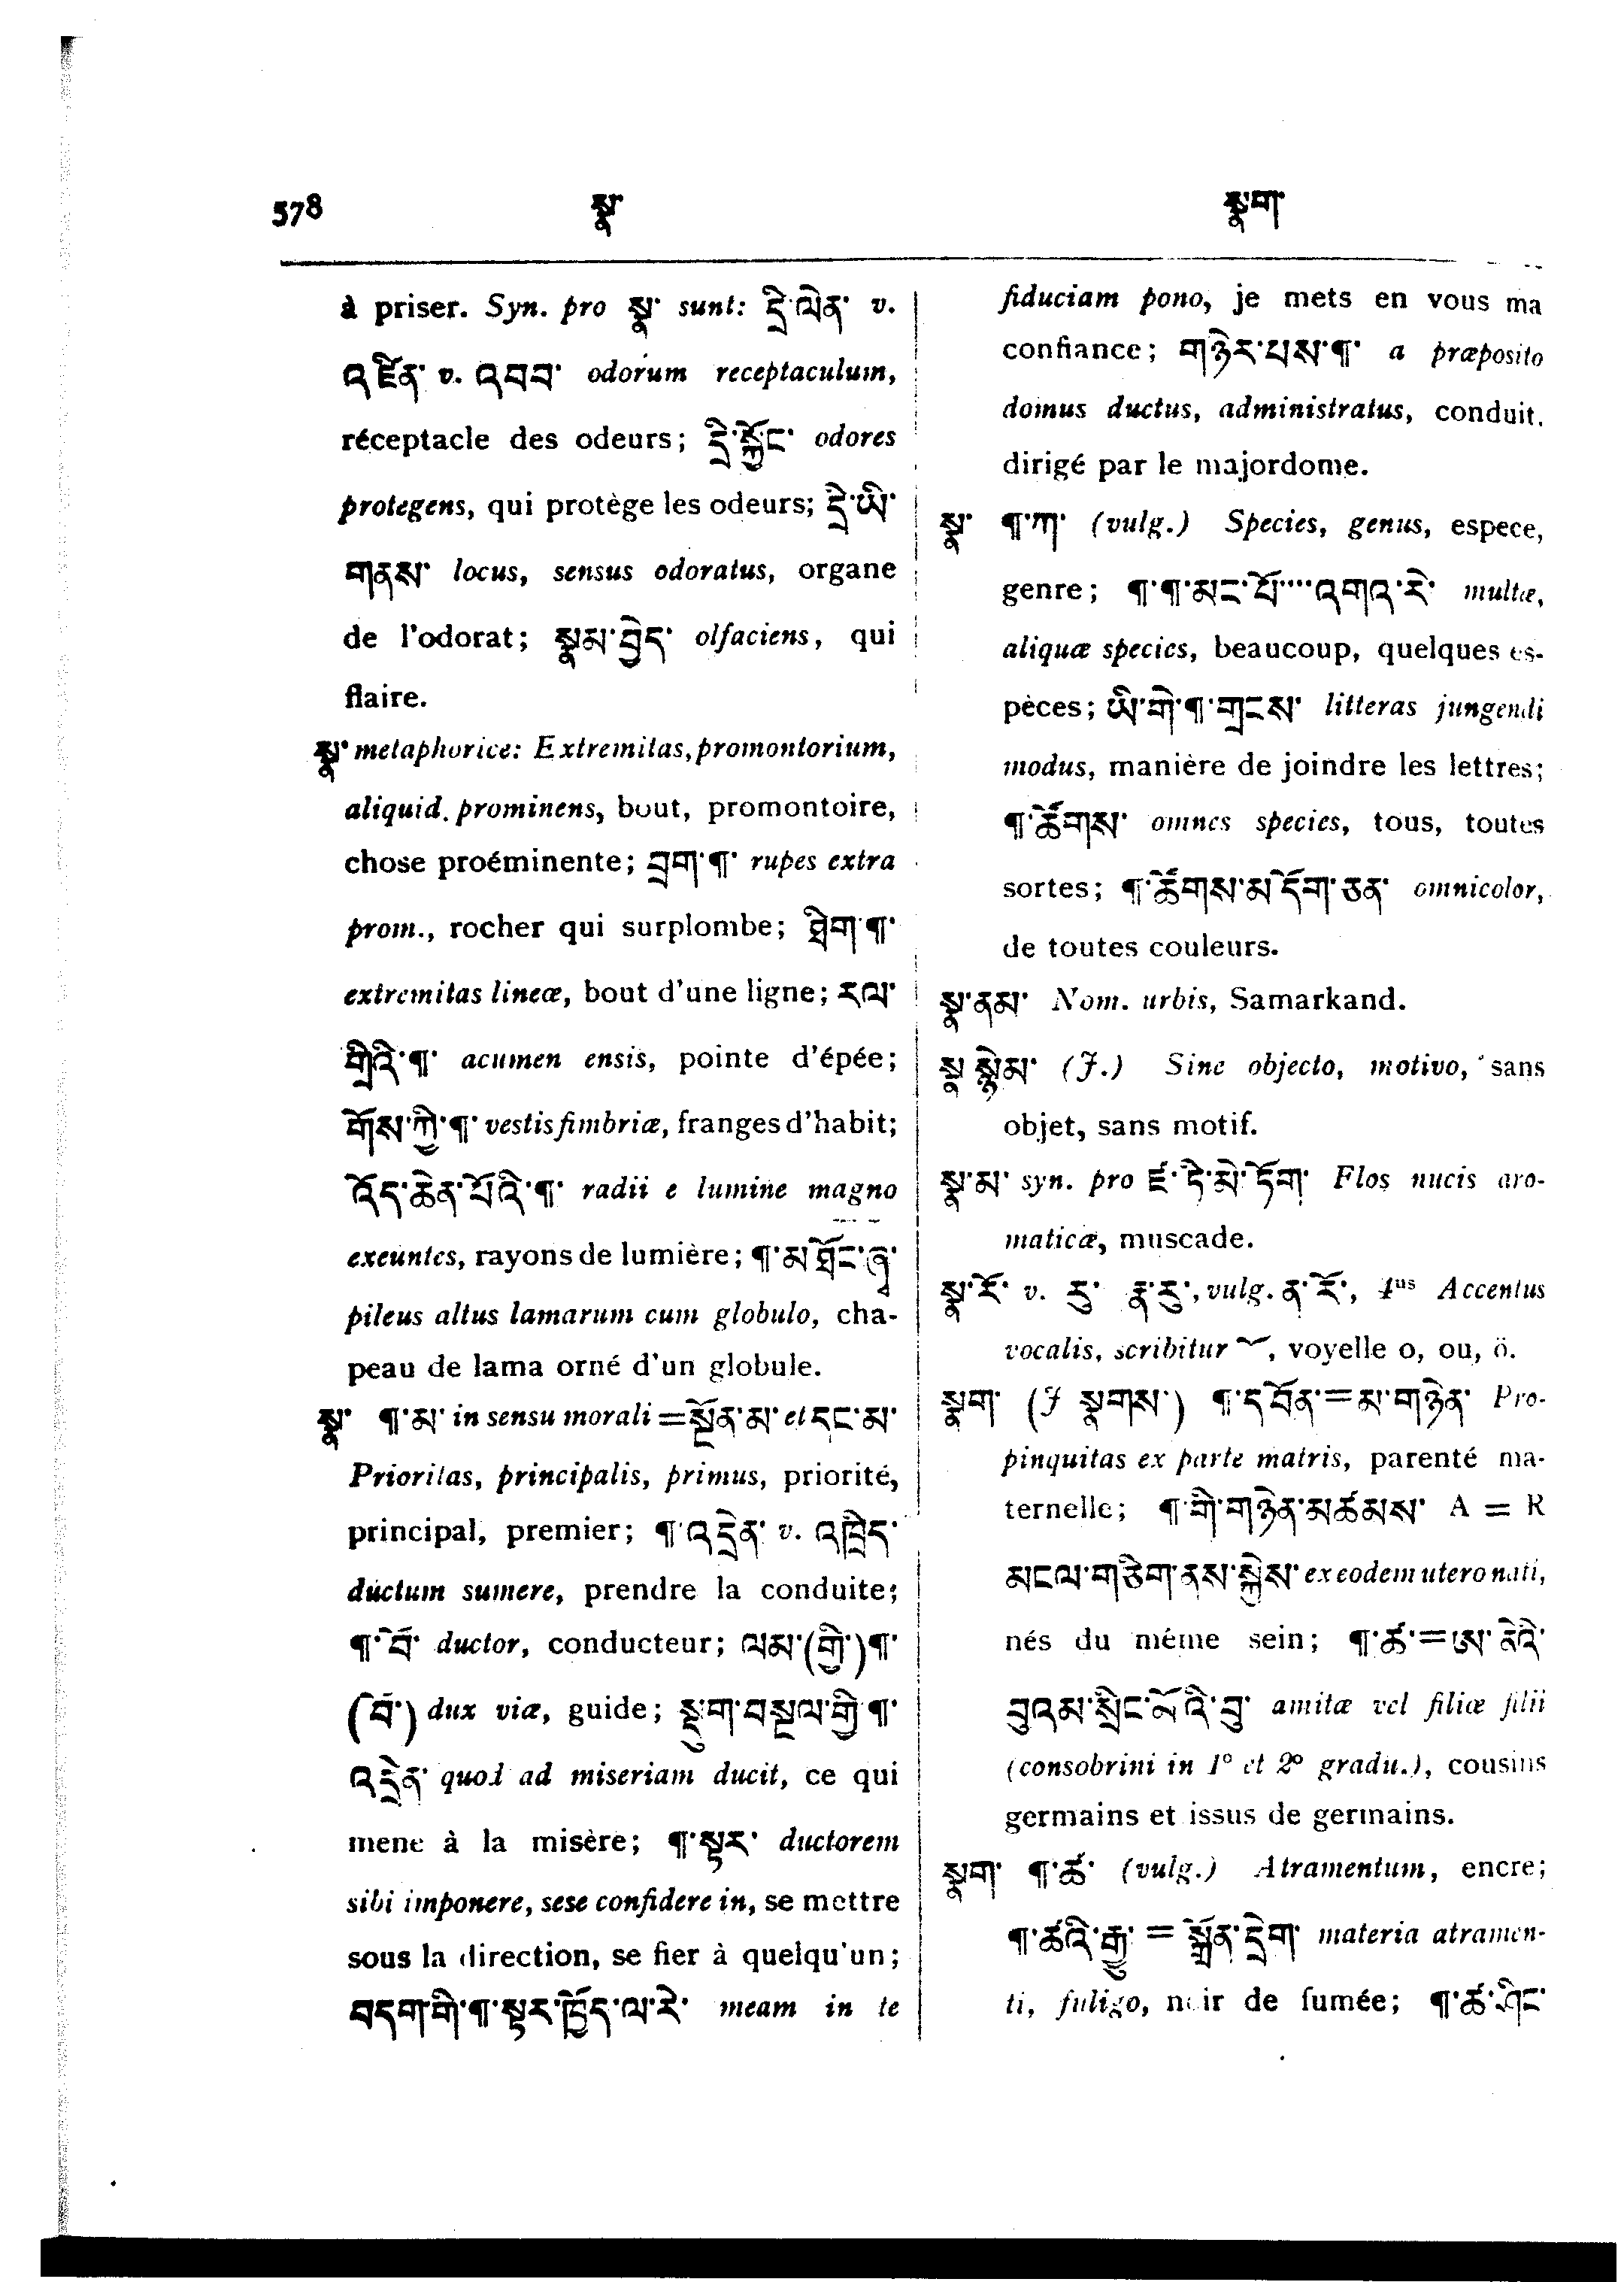 578 སྣ་ སྣག་
à priser. Syn. pro སྣ་ sunt: དྲི་ལེན་ v.
འཛིན་ v. འབབ་ odorum receptaculum,
réceptacle des odeurs; དྲི་སྐྱོང་ odores
protegens, qui protège les odeurs; དྲི་ཡི་
གནས་ locus, sensus odoratus, organe
de l'odorat; སྣམ་བྱེད་ olfaciens, qui
flaire.
སྣ་ metaphorice: Extremitas, promontorium,
aliquid prominens, bout, promontoire,
chose proéminente; བྲག་¶་ rupes extra
prom., rocher qui surplombe; ཐིག་¶་
extremitas lineæ, bout d'une ligne; རལ་
གྲིའི་¶་ acumen ensis, pointe d'épée;
གོས་ཀྱི་¶་ vestis fimbriæ, franges d'habit;
འོད་ཆེན་པོའི་¶་ radii e lumine magno
exeuntes, rayons de lumière; ¶་མཐོང་ཞྭ་
pileus altus lamarum cum globulo, cha-
peau de lama orné d'un globule.
སྣ་ ¶་མ་ in sensu morali = སྔོན་མ་ et དང་མ་
Prioritas, principalis, primus, priorité,
principal, premier; ¶་འདྲེན་ v. འཁྲིད་
ductum sumere, prendre la conduite;
¶་བོ་ ductor, conducteur; ལམ་(གྱི་)¶་
(བོ་) dux viæ, guide; སྡུག་བསྔལ་གྱི་¶་
འདྲེན་ quod ad miseriam ducit, ce qui
mene à la misère; ¶་སྟར་ ductorem
sibi imponere, sese confidere in, se mettre
sous la direction, se fier à quelqu'un;
བདག་གི་¶་སྟར་ཁྱོད་ལ་རེ་ meam in te
fiduciam pono, je mets en vous ma
confiance; གཉེར་པས་¶་ a præposito
domus ductus, administratus, conduit.
dirigé par le majordome.
སྣ་ ¶་ཀ་ (vulg.) Species, genus, espece,
genre; ¶་¶་མང་པོ་····འགའ་རེ་ multæ,
aliquæ species, beaucoup, quelques es-
pèces; ཡི་གེ་¶་གྲངས་ litteras jungendi
modus, manière de joindre les lettres;
¶་ཚོགས་ omnes species, tous, toutes
sortes; ¶་ཚོགས་མདོག་ཅན་ omnicolor,
de toutes couleurs.
སྣ་ནམ་ Nom. urbis, Samarkand.
སྣ་སྙེམ་ (J.) Sine objecto, motivo, sans
objet, sans motif.
སྣ་མ་ syn. pro ཛ་ཏི་མེ་ཏོག་ Flos nucis aro-
maticæ, muscade.
སྣ་རོ་ v. རུ་ རྣ་རུ་, vulg. ན་རོ་, 4us Accentus
vocalis, scribitur ོ, voyelle o, ou, ö.
སྣག་ (J སྣགས་) ¶་དབོན་=མ་གཉེན་ Pro-
pinquitas ex parte matris, parenté ma-
ternelle; ¶་གི་གཉེན་མཚམས་ A = R
མངལ་གཅིག་ནས་སྐྱེས་ ex eodem utero nati,
nés du méme sein; ¶་ཚ་=ཨ་ནེའི་
བུའམ་སྲིང་མོའི་བུ་ amitæ vel filiæ filii
(consobrini in 1° et 2° gradu.), cousins
germains et issus de germains.
སྣག་ ¶་ཚ་ (vulg.) Atramentum, encre;
¶་ཚའི་རྒྱུ་ = སྒྲོན་དྲེག་ materia atramen-
ti, fuligo, noir de fumée; ¶་ཚ་ཤིང་